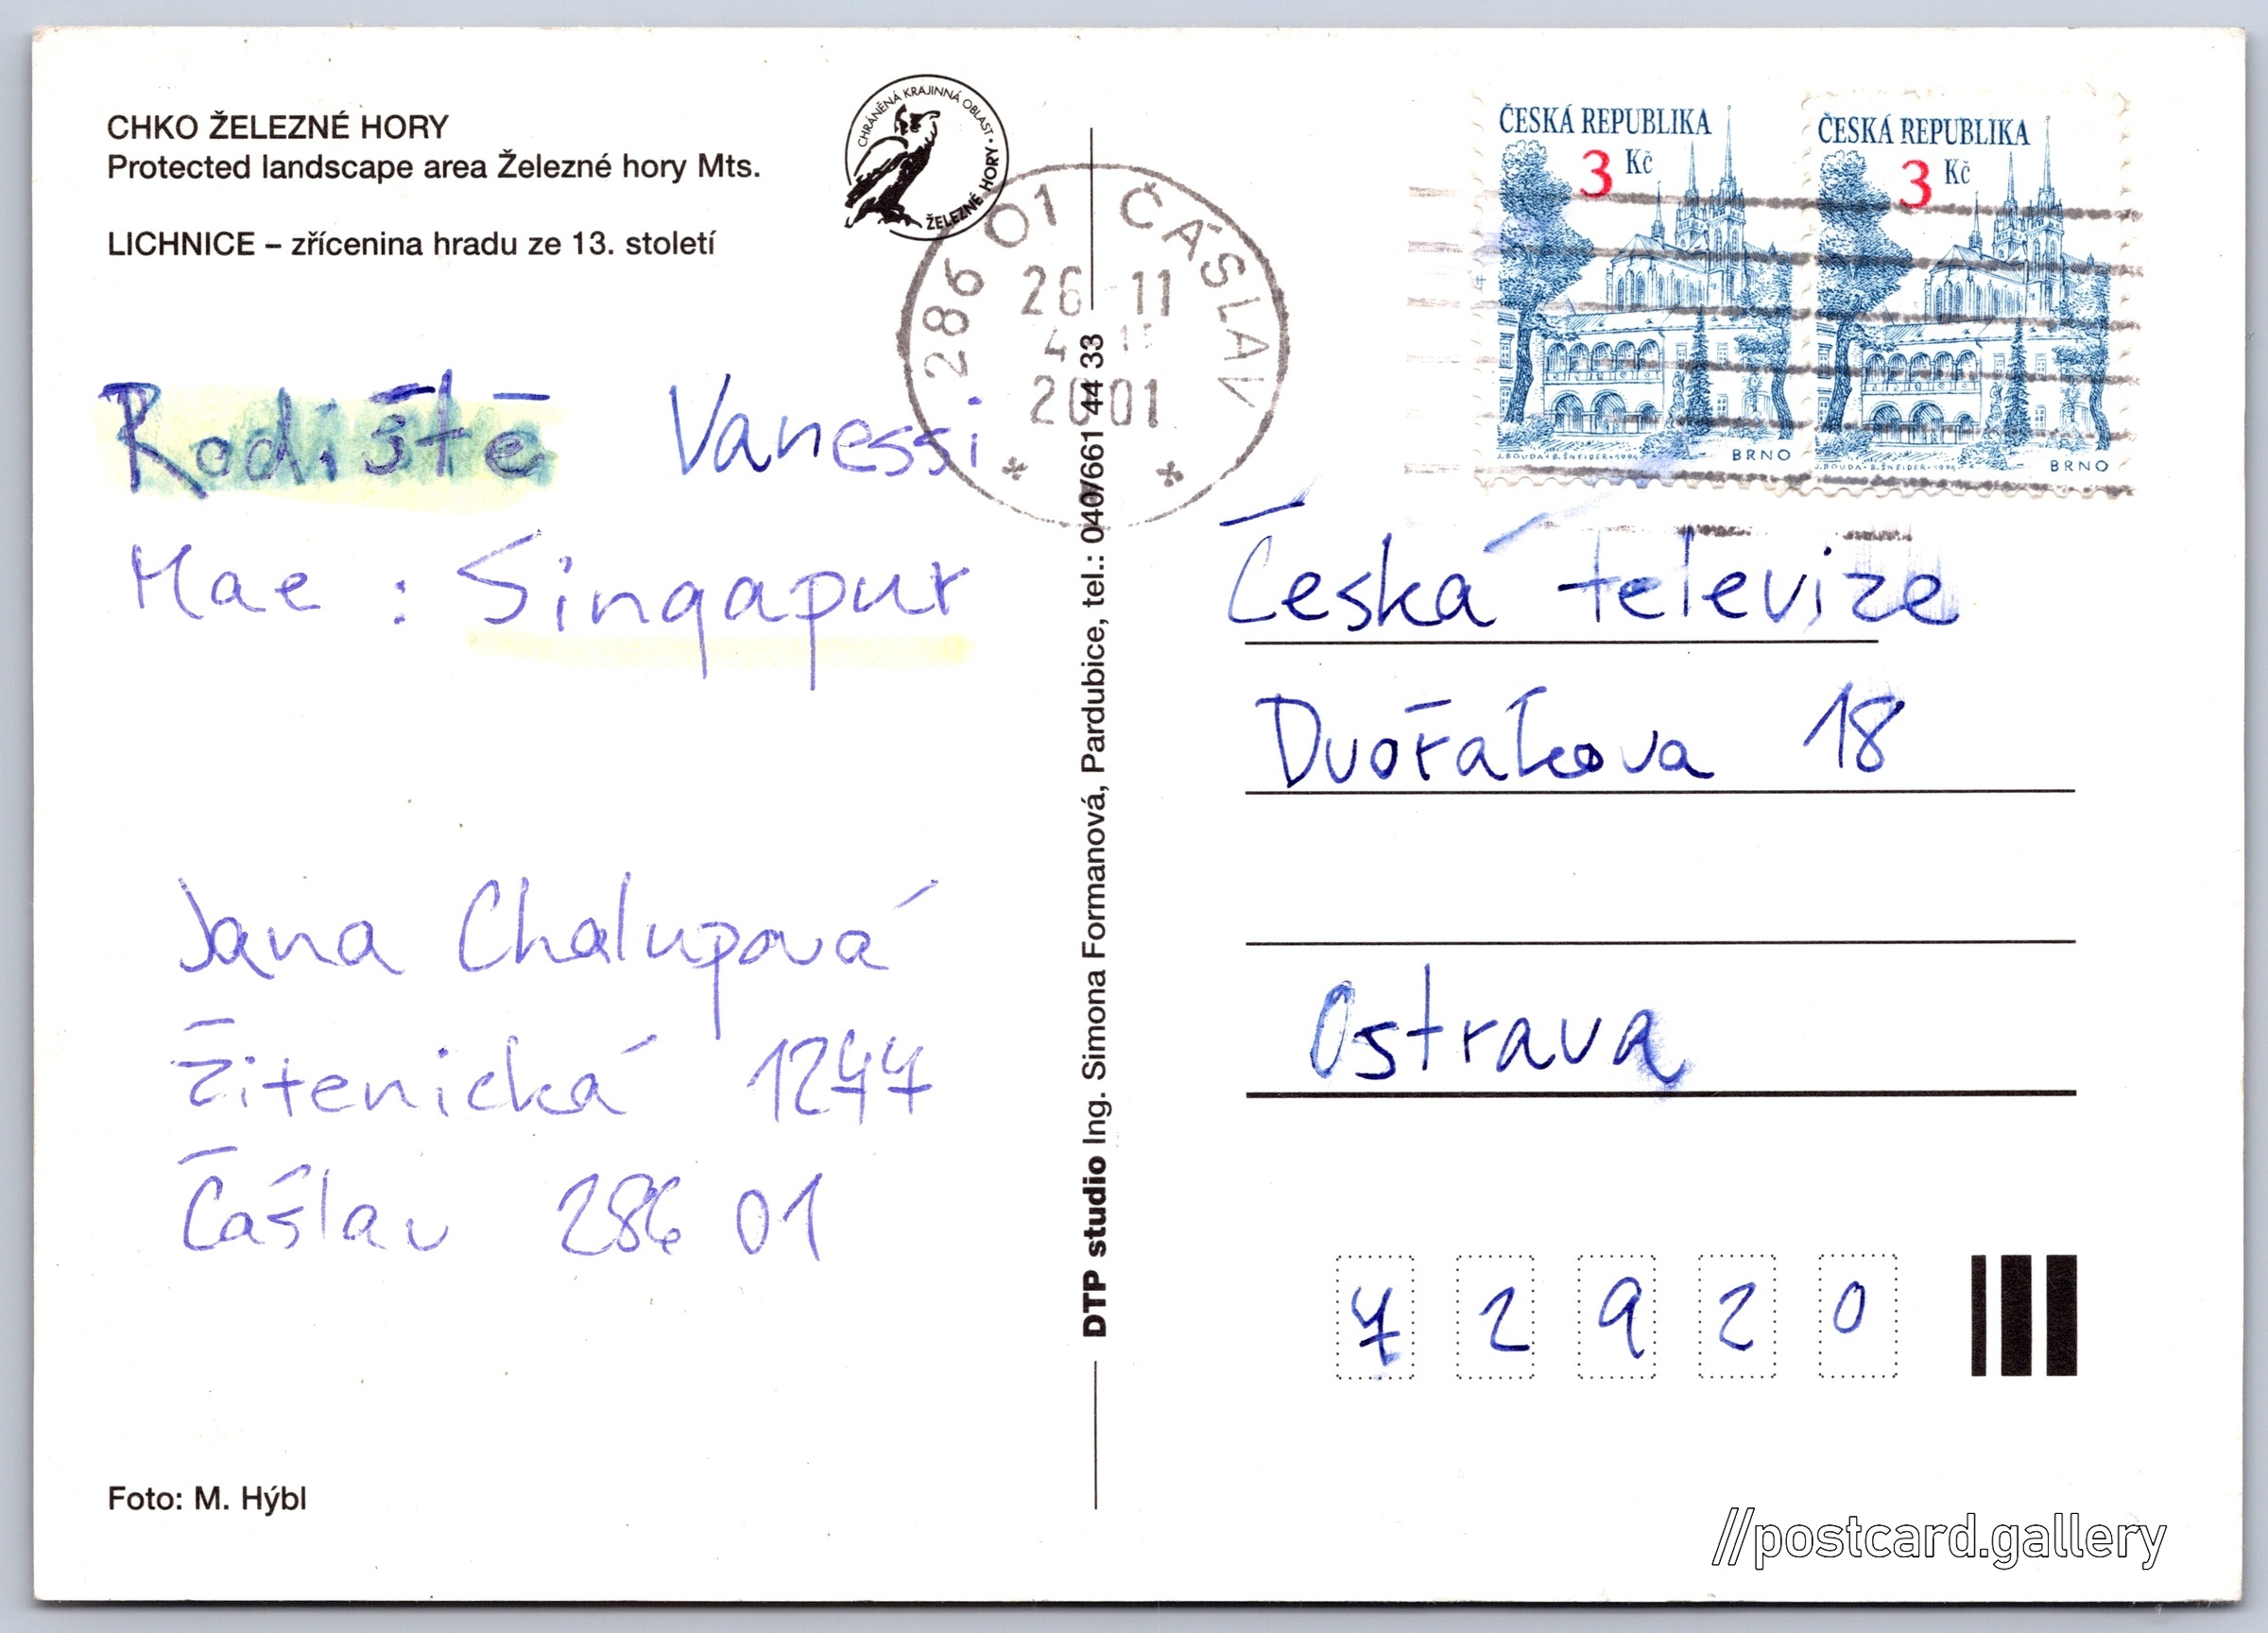 CHKO ŽELEZNÉ HORY
Protected landscape area Železné hory Mts.
LICHNICE – zřícenina hradu ze 13. století
CHRÁNĚNÁ KRAJINNÁ OBLAST • ŽELEZNÉ HORY •
286 01 ČÁSLAV
26 -11
2001
ČESKÁ REPUBLIKA
3 Kč
J. BOUDA • B. ŠNEIDER • 1994
BRNO
ČESKÁ REPUBLIKA
3 Kč
J. BOUDA • B. ŠNEIDER • 1994
BRNO
Rodiště Vanessi
Mae : Singapur
Jana Chalupová
Žitenická 1277
Čáslav 286 01
Foto: M. Hýbl
DTP studio Ing. Simona Formanová, Pardubice, tel.: 040/661 44 33
Česká televize
Dvořákova 18
Ostrava
7 2 9 2 0
//postcard.gallery